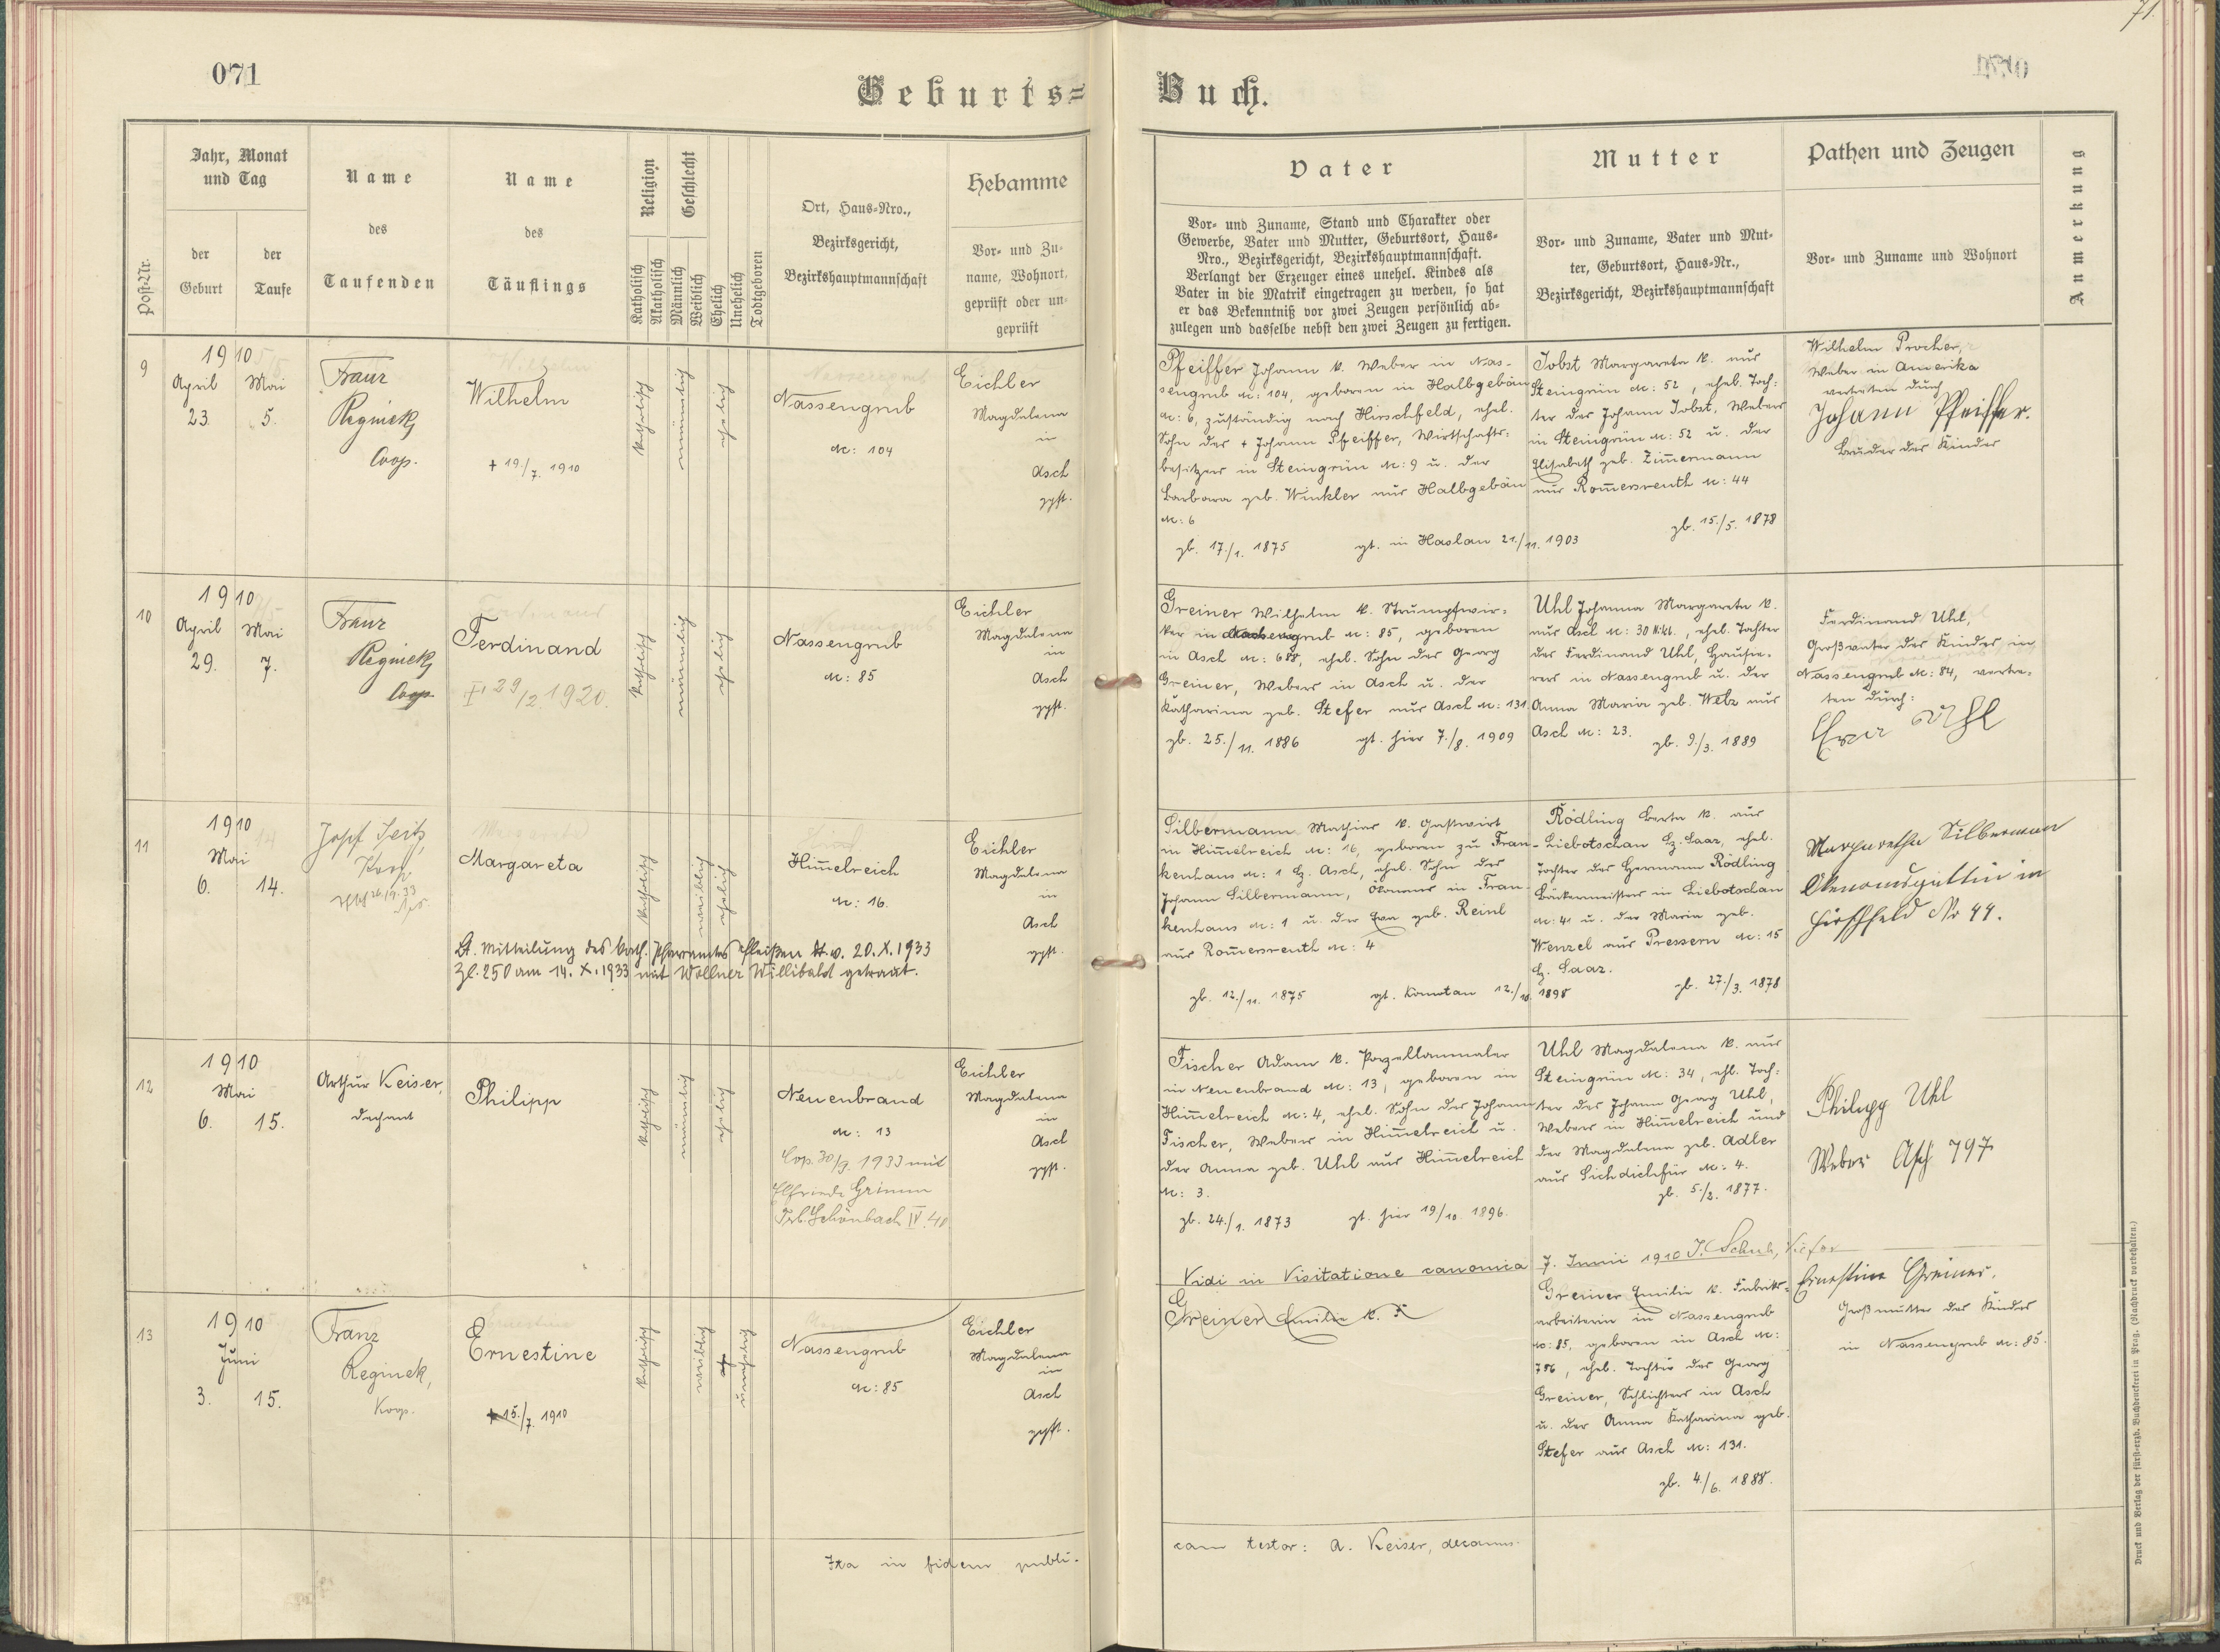 071
71.
Geburts=
Buch.
Post-Nr.
Jahr, Monat
und Tag
der
Geburt
der
Taufe
Name
des
Taufenden
Name
des
Täuflings
Religion
Katholisch
Akatholisch
Geschlecht
Männlich
Weiblich
Ehelich
Unehelich
Todtgeboren
Ort, Haus-Nro.,
Bezirksgericht,
Bezirkshauptmannschaft
Hebamme
Vor- und Zu-
name, Wohnort,
geprüft oder un-
geprüft
Vater
Vor- und Zuname, Stand und Charakter oder
Gewerbe, Vater und Mutter, Geburtsort, Haus-
Nro., Bezirksgericht, Bezirkshauptmannschaft.
Verlangt der Erzeuger eines unehel. Kindes als
Vater in die Matrik eingetragen zu werden, so hat
er das Bekenntniß vor zwei Zeugen persönlich ab-
zulegen und dasselbe nebst den zwei Zeugen zu fertigen.
Mutter
Vor- und Zuname, Vater und Mut-
ter, Geburtsort, Haus-Nr.,
Bezirksgericht, Bezirkshauptmannschaft
Pathen und Zeugen
Vor- und Zuname und Wohnort
Anmerkung
9
1910
April
23.
Mai
5.
Franz
Reginek,
Coop.
Wilhelm
+ 19./7. 1910
katholisch
männlich
ehelich
Nassengrub
N: 104
Eichler
Magdalena
in
Asch
gpft.
Pfeiffer Johann k. Weber in Nas-
sengrub N: 104, geboren in Halbgebäu
N: 6, zuständig nach Hirschfeld, ehel.
Sohn des + Johann Pfeiffer, Wirtschafts-
besitzers in Steingrün N: 9 u. der
Barbara geb. Winkler aus Halbgebäu
N: 6
gb. 17./1. 1875 gt. in Haslau 21./11. 1903
Jobst Margareta k. aus
Steingrün N: 52, ehel. Toch-
ter des Johann Jobst, Webers
in Steingrün N: 52 u. der
Elisabeth geb. Zim̄ermann
aus Rom̄ersreuth N: 44
gb. 15./5. 1878
Wilhelm Procher,
Weber in Amerika
vertreten durch
Johann Pfeiffer.
Bruder des Kindes
10
1910
April
29.
Mai
7.
Franz
Reginek,
Coop.
Ferdinand
29/2. 1920.
katholisch
männlich
ehelich
Nassengrub
N: 85
Eichler
Magdalena
in
Asch
gpft.
Greiner Wilhelm k. Strumpfwir-
ker in Nassengrub N: 85, geboren
in Asch N: 688, ehel. Sohn des Georg
Greiner, Webers in Asch u. der
Katharina geb. Stefer aus Asch N: 131.
gb. 25./11. 1886 gt. hier 7./8. 1909
Uhl Johanna Margareta k.
aus Asch N: 30, ehel. Tochter
des Ferdinand Uhl, Hausie-
rers in Nassengrub u. der
Anna Maria geb. Welz aus
Asch N: 23.
gb. 9./3. 1889
Ferdinand Uhl,
Großvater des Kindes in
Nassengrub N: 84, vertre-
ten durch:
Eva Uhl
11
1910
Mai
6.
14.
Josef Seitz,
Koop.
Margareta
Lt. Mitteilung des kath. Pfarramtes Fleißen dt. v. 20. X. 1933
Zl. 250 am 14. X. 1933 mit Wollner Willibald getraut.
katholisch
weiblich
ehelich
Him̄elreich
N: 16.
Eichler
Magdalena
in
Asch
gpft.
Silbermann Mathias k. Gastwirt
in Him̄elreich N: 16, geboren zu Fran-
kenhaus N: 1 Bz. Asch, ehel. Sohn des
Johann Silbermann, Ökonoms in Fran-
kenhaus N: 1 u. der Eva geb. Reinl
aus Rom̄ersreuth N: 4
gb. 12./11. 1875 gt. Komotau 12./10. 1898
Rödling Berta k. aus
Liebotschan Bz. Saaz, ehel.
Tochter des Hermann Rödling
Bäckermeisters in Liebotschan
N: 41 u. der Maria geb.
Wenzel aus Pressern N: 15
Bz. Saaz.
gb. 27./3. 1878
Margaretha Silbermann
Ökonomsgattin in
Hirschfeld Nr 44.
12
1910
Mai
6.
15.
Arthur Keiser,
Dechant
Philipp
katholisch
männlich
ehelich
Neuenbrand
N: 13
Cop. 30/9. 1933 mit
Elfriede Grimm
Schönbach IV. 40
Eichler
Magdalena
in
Asch
gpft.
Fischer Adam k. Porzellanmaler
in Neuenbrand N: 13, geboren in
Him̄elreich N: 4, ehel. Sohn des Johann
Fischer, Webers in Him̄elreich u.
der Anna geb. Uhl aus Him̄elreich
N: 3.
gb. 24./1. 1873 gt. hier 19/10. 1896.
Uhl Magdalena k. aus
Steingrün N: 34, ehl. Toch-
ter des Johann Georg Uhl,
Webers in Him̄elreich und
der Magdalena geb. Adler
aus Sichdichfür N: 4.
gb. 5./2. 1877.
Philipp Uhl
Weber Asch 797
Vidi in Visitatione canonica 7. Junii 1910 J. Schub, Vicar
13
1910
Juni
3.
15.
Franz
Reginek,
Koop.
Ernestine
+ 15./7. 1910
katholisch
weiblich
unehelich
Nassengrub
N: 85
Eichler
Magdalena
in
Asch
gpft.
Greiner Emilie k. F
Greiner Emilie k. Fabriks-
arbeiterin in Nassengrub
N: 85, geboren in Asch N:
756, ehel. Tochter des Georg
Greiner, Schlichters in Asch
u. der Anna Katharina geb.
Stefer aus Asch N: 131.
gb. 4./6. 1888.
Ernestine Greiner,
Großmutter des Kindes
in Nassengrub N: 85.
Ita in fidem publi-
cam testor: A. Keiser, decanus.
Druck und Verlag der fürst-erzb. Buchdruckerei in Prag. (Nachdruck vorbehalten.)